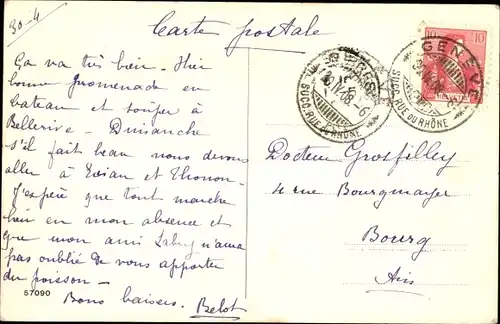 30-4
Carte postale
Ça va très bien - Hier
bonne promenade en
bateau et souper à
Bellerive - Dimanche
s'il fait beau nous devons
aller à Evian et Thonon -
J'espère que tout marche
bien en mon absence et
que mon ami n'aura
pas oublié de vous apporter
du poisson -
Bons baisers. Belot
57090
10 10
GENÈVE
SUCC. RUE DU RHÔNE
SUCC. RUE DU RHÔNE
Docteur Grosfilley
4 rue Bourgmayer
Bourg
Ain